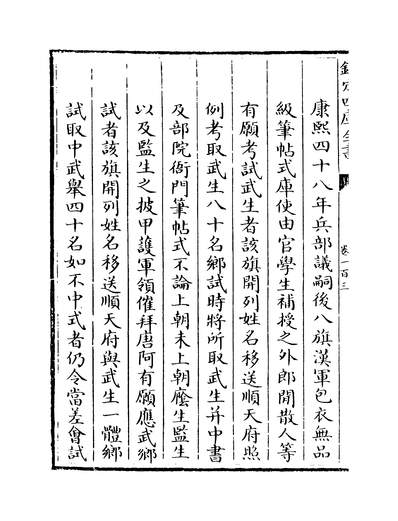 康熙四十八年兵部議嗣後八旗漢軍包衣無品
級筆帖式庫使由官學生補授之外郎閒散人等
有願考試武生者該旗開列姓名移送順天府照
例考取武生八十名鄉試時將所取武生并中書
及部院衙門筆帖式不論上朝未上朝廕生監生
以及監生之披甲護軍領催拜唐阿有願應武鄉
試者該旗開列姓名移送順天府與武生一體鄉
試取中武舉四十名如不中式者仍令當差會試
卷一百三